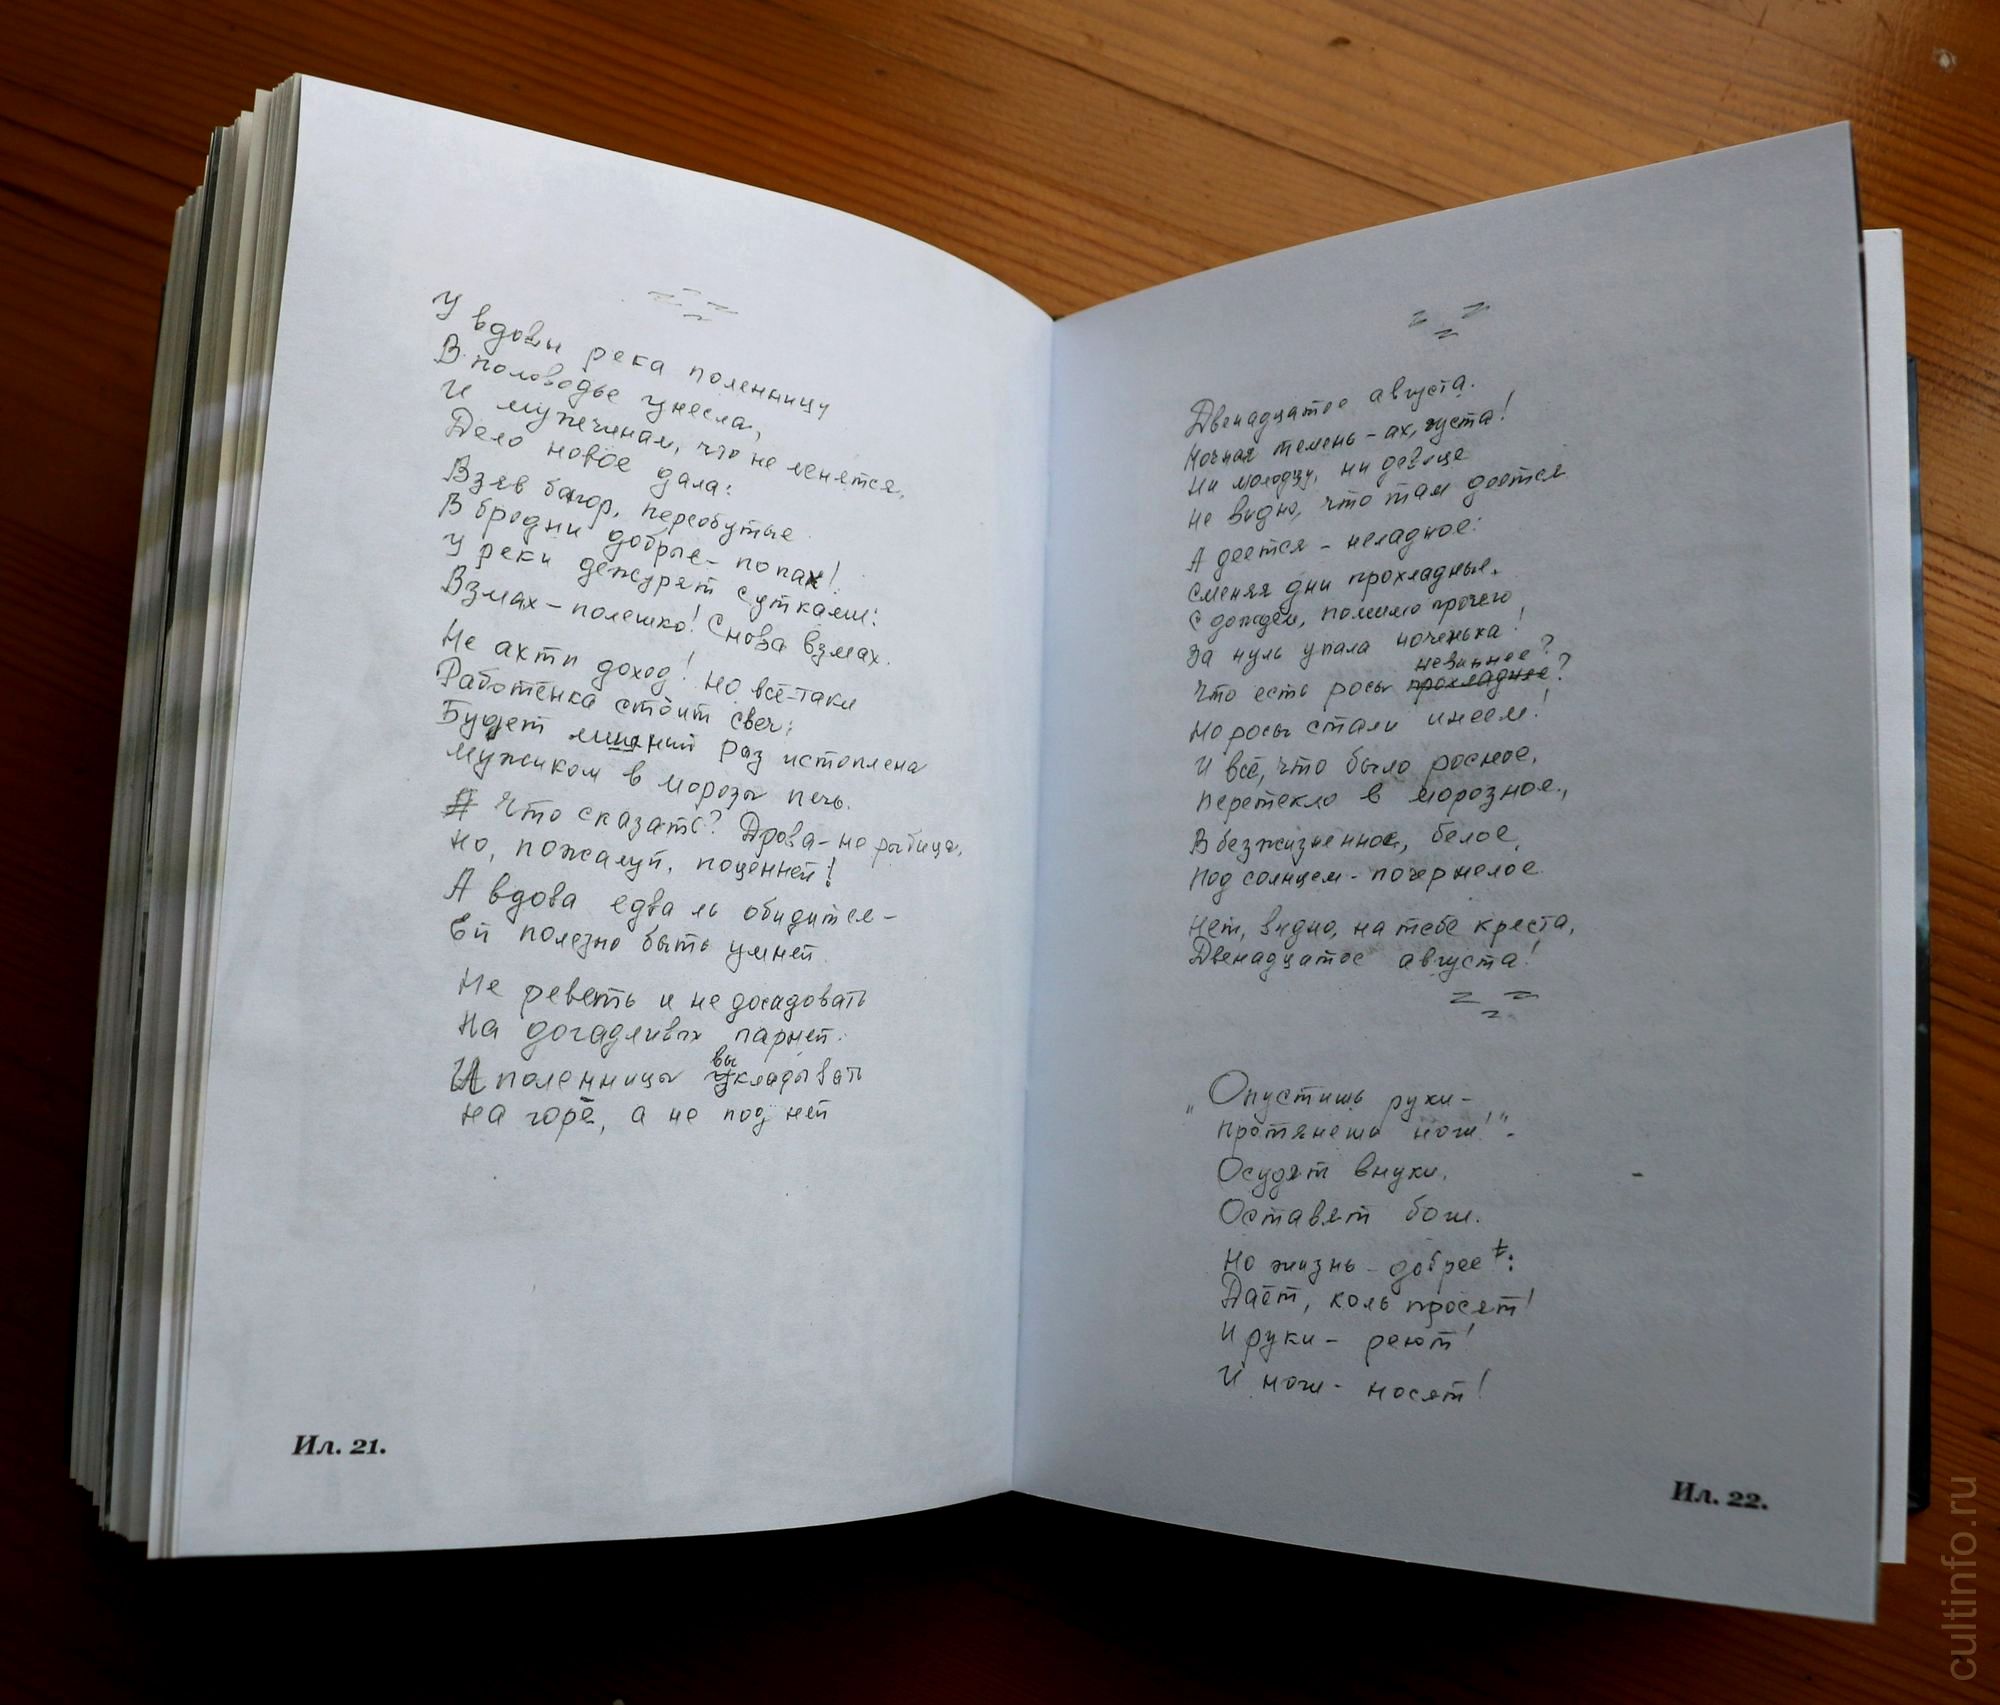 У вдовы река поленницу
В половодье унесла,
И мужчинам, что не ленятся,
Дело новое дала:
Взяв багор, переобутые
В бродни добрые – по пах!
У реки дежурят сутками:
Взмах – полешко! Снова взмах.
Не ахти доход! Но всё-таки
Работёнка стоит свеч:
Будет лишний раз истоплена
Мужиком в морозы печь.
Что сказать? Дрова – не рыбица,
Но, пожалуй, поценней!
А вдова едва ль обидится –
Ей полезно быть умней.
Не реветь и не досадовать
На догадливых парней.
И поленницы выкладывать
На горе, а не под ней
Ил. 21.
Двенадцатое августа.
Ночная темень – ах, густа!
Ни молодцу, ни девице
Не видно, что там деется
А деется – неладное:
Сменяя дни прохладные,
С дождём, помимо прочего
За нуль упала ноченька!
невиннее?
Что есть росы прохладнее?
Но росы стали инеем!
И всё, что было росное,
Перетекло в морозное,
В безжизненное, белое,
Под солнцем – почернелое.
Нет, видно, на тебе креста,
Двенадцатое августа!
„Опустишь руки –
Протянешь ноги!" –
Осудят внуки,
Оставят боги.
Но жизнь – добрее:
Даёт, коль просят!
И руки – реют!
И ноги – носят!
Ил. 22.
cultinfo.ru